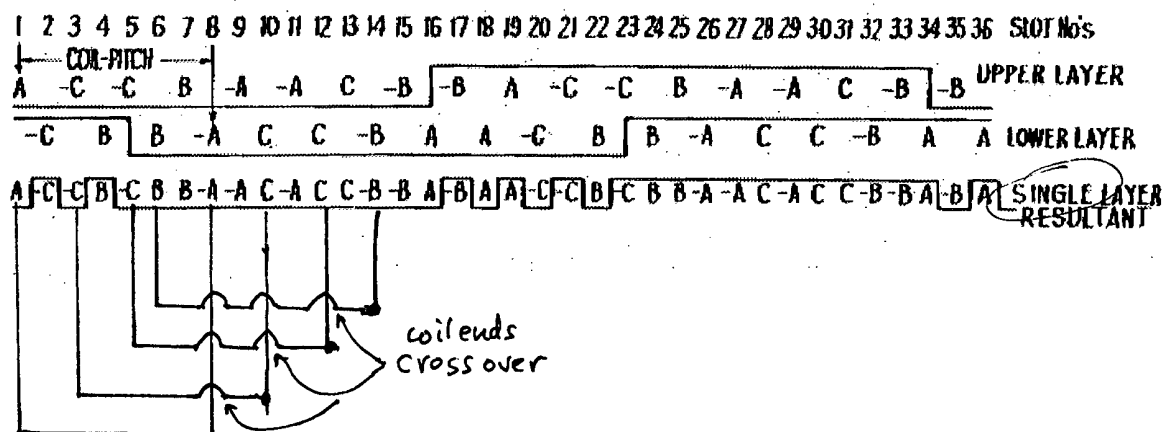 1 2 3 4 5 6 7 8 9 10 11 12 13 14 15 16 17 18 19 20 21 22 23 24 25 26 27 28 29 30 31 32 33 34 35 36 SLOT No's
COIL-PITCH
A -C -C B -A -A C -B -B A -C -C B -A -A C -B -B UPPER LAYER
-C B B -A C C -B A A -C B B -A C C -B A A LOWER LAYER
A -C -C B -C B B -A -A C -A C C -B -B A -B A A -C -C B C B B -A -A C -A C C -B -B A -B A SINGLE LAYER
RESULTANT
coil ends
cross over